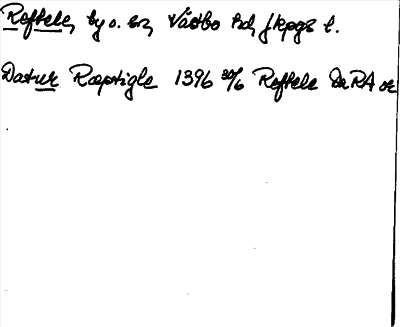 Reftele, by o. sn, Västbo hd, Jkpgs l.
Datum Ræptigle 1396 30/6 Reftele DaRA or